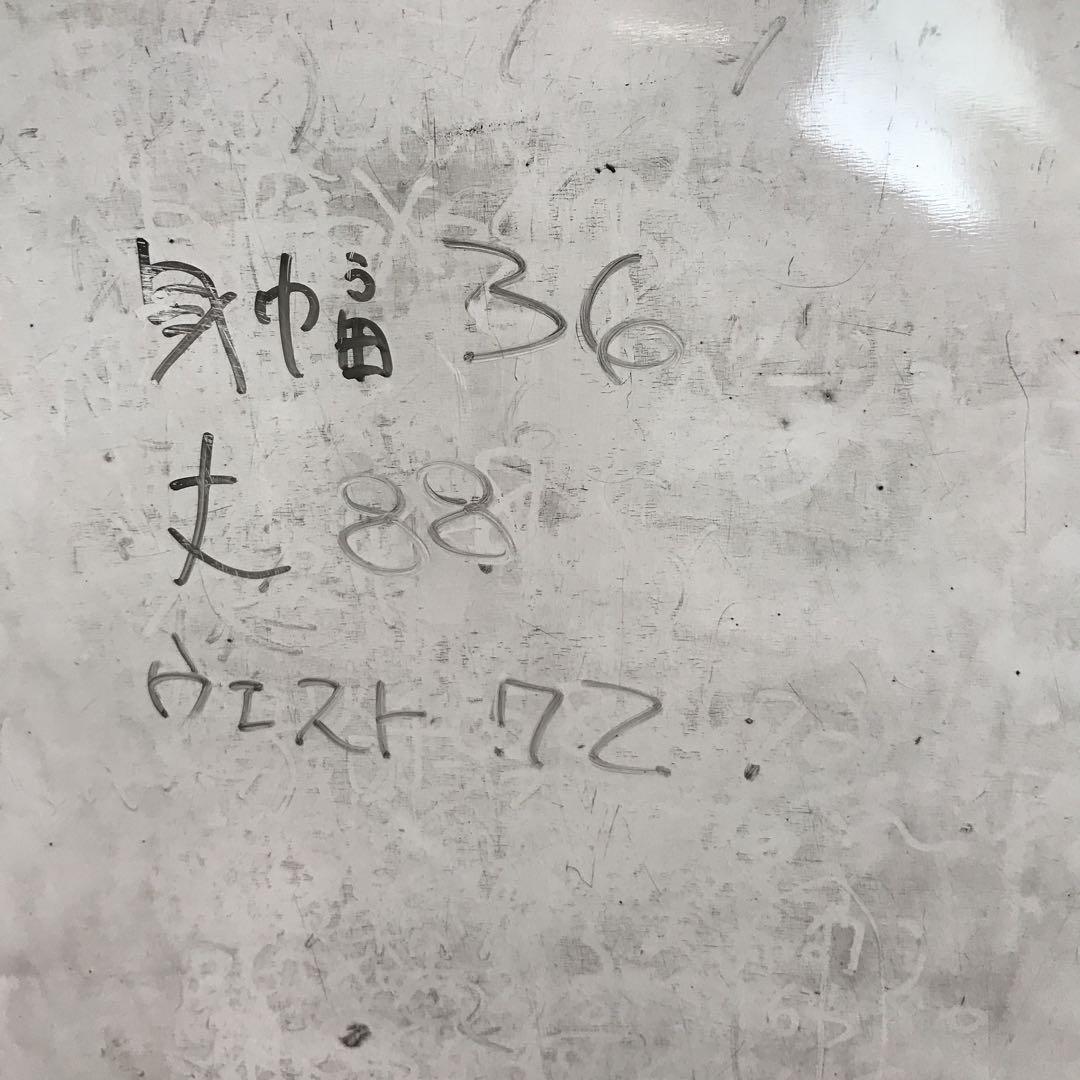 身幅 36
丈 88
ウエスト 72